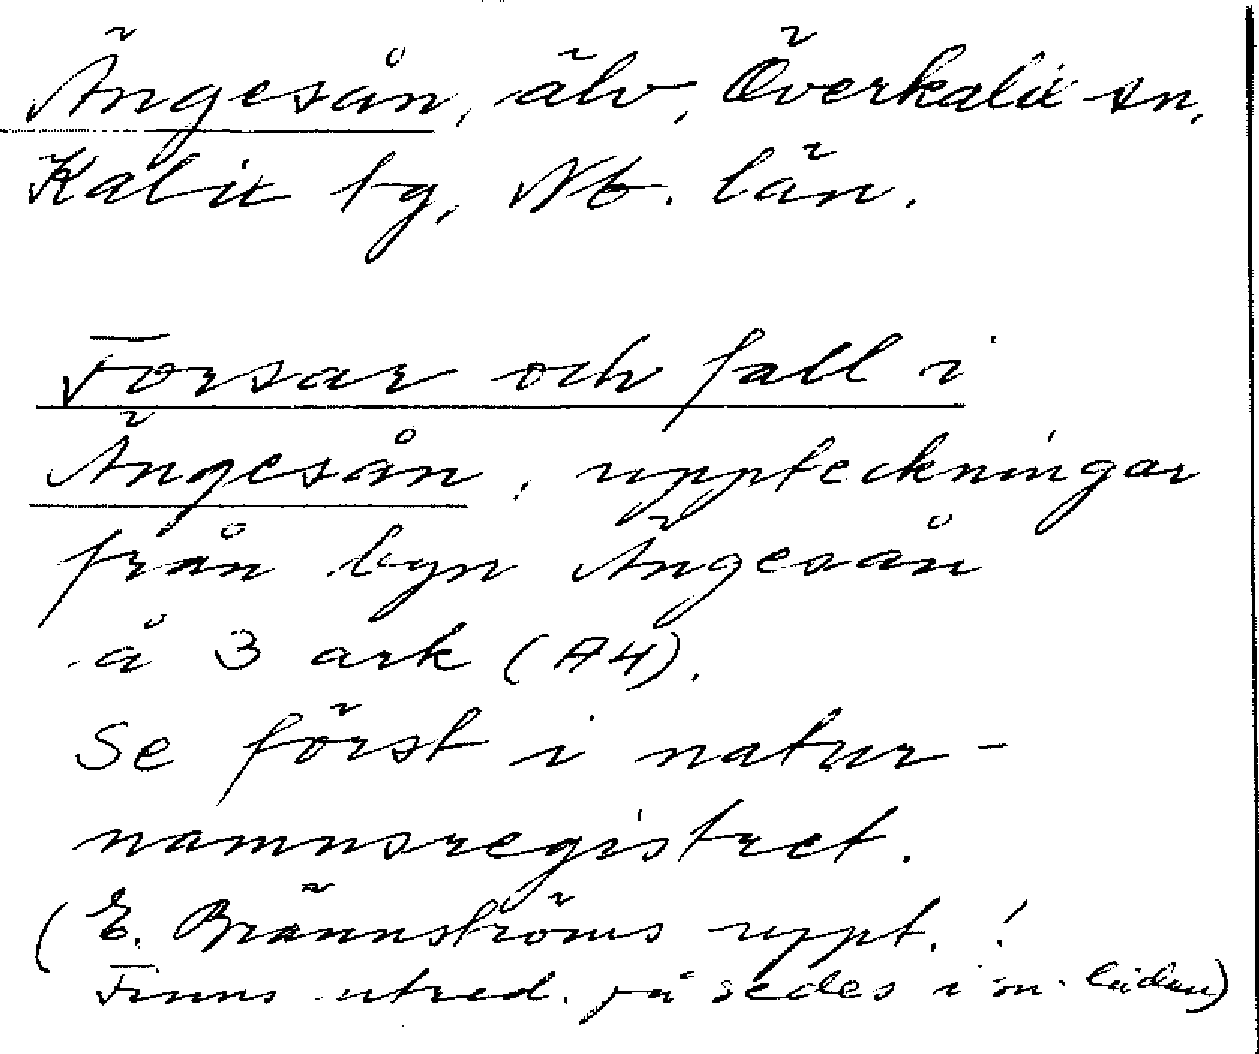 Ängesån, älv, Överkalix sn,
Kalix tg, Nb. län.
Forsar och fall i
Ängesån, uppteckningar
från byn Ängesån
å 3 ark (A4).
Se först i natur-
namnsregistret.
(E. Brännströms uppt. !
Finns utred. på sedes i m. lådan)